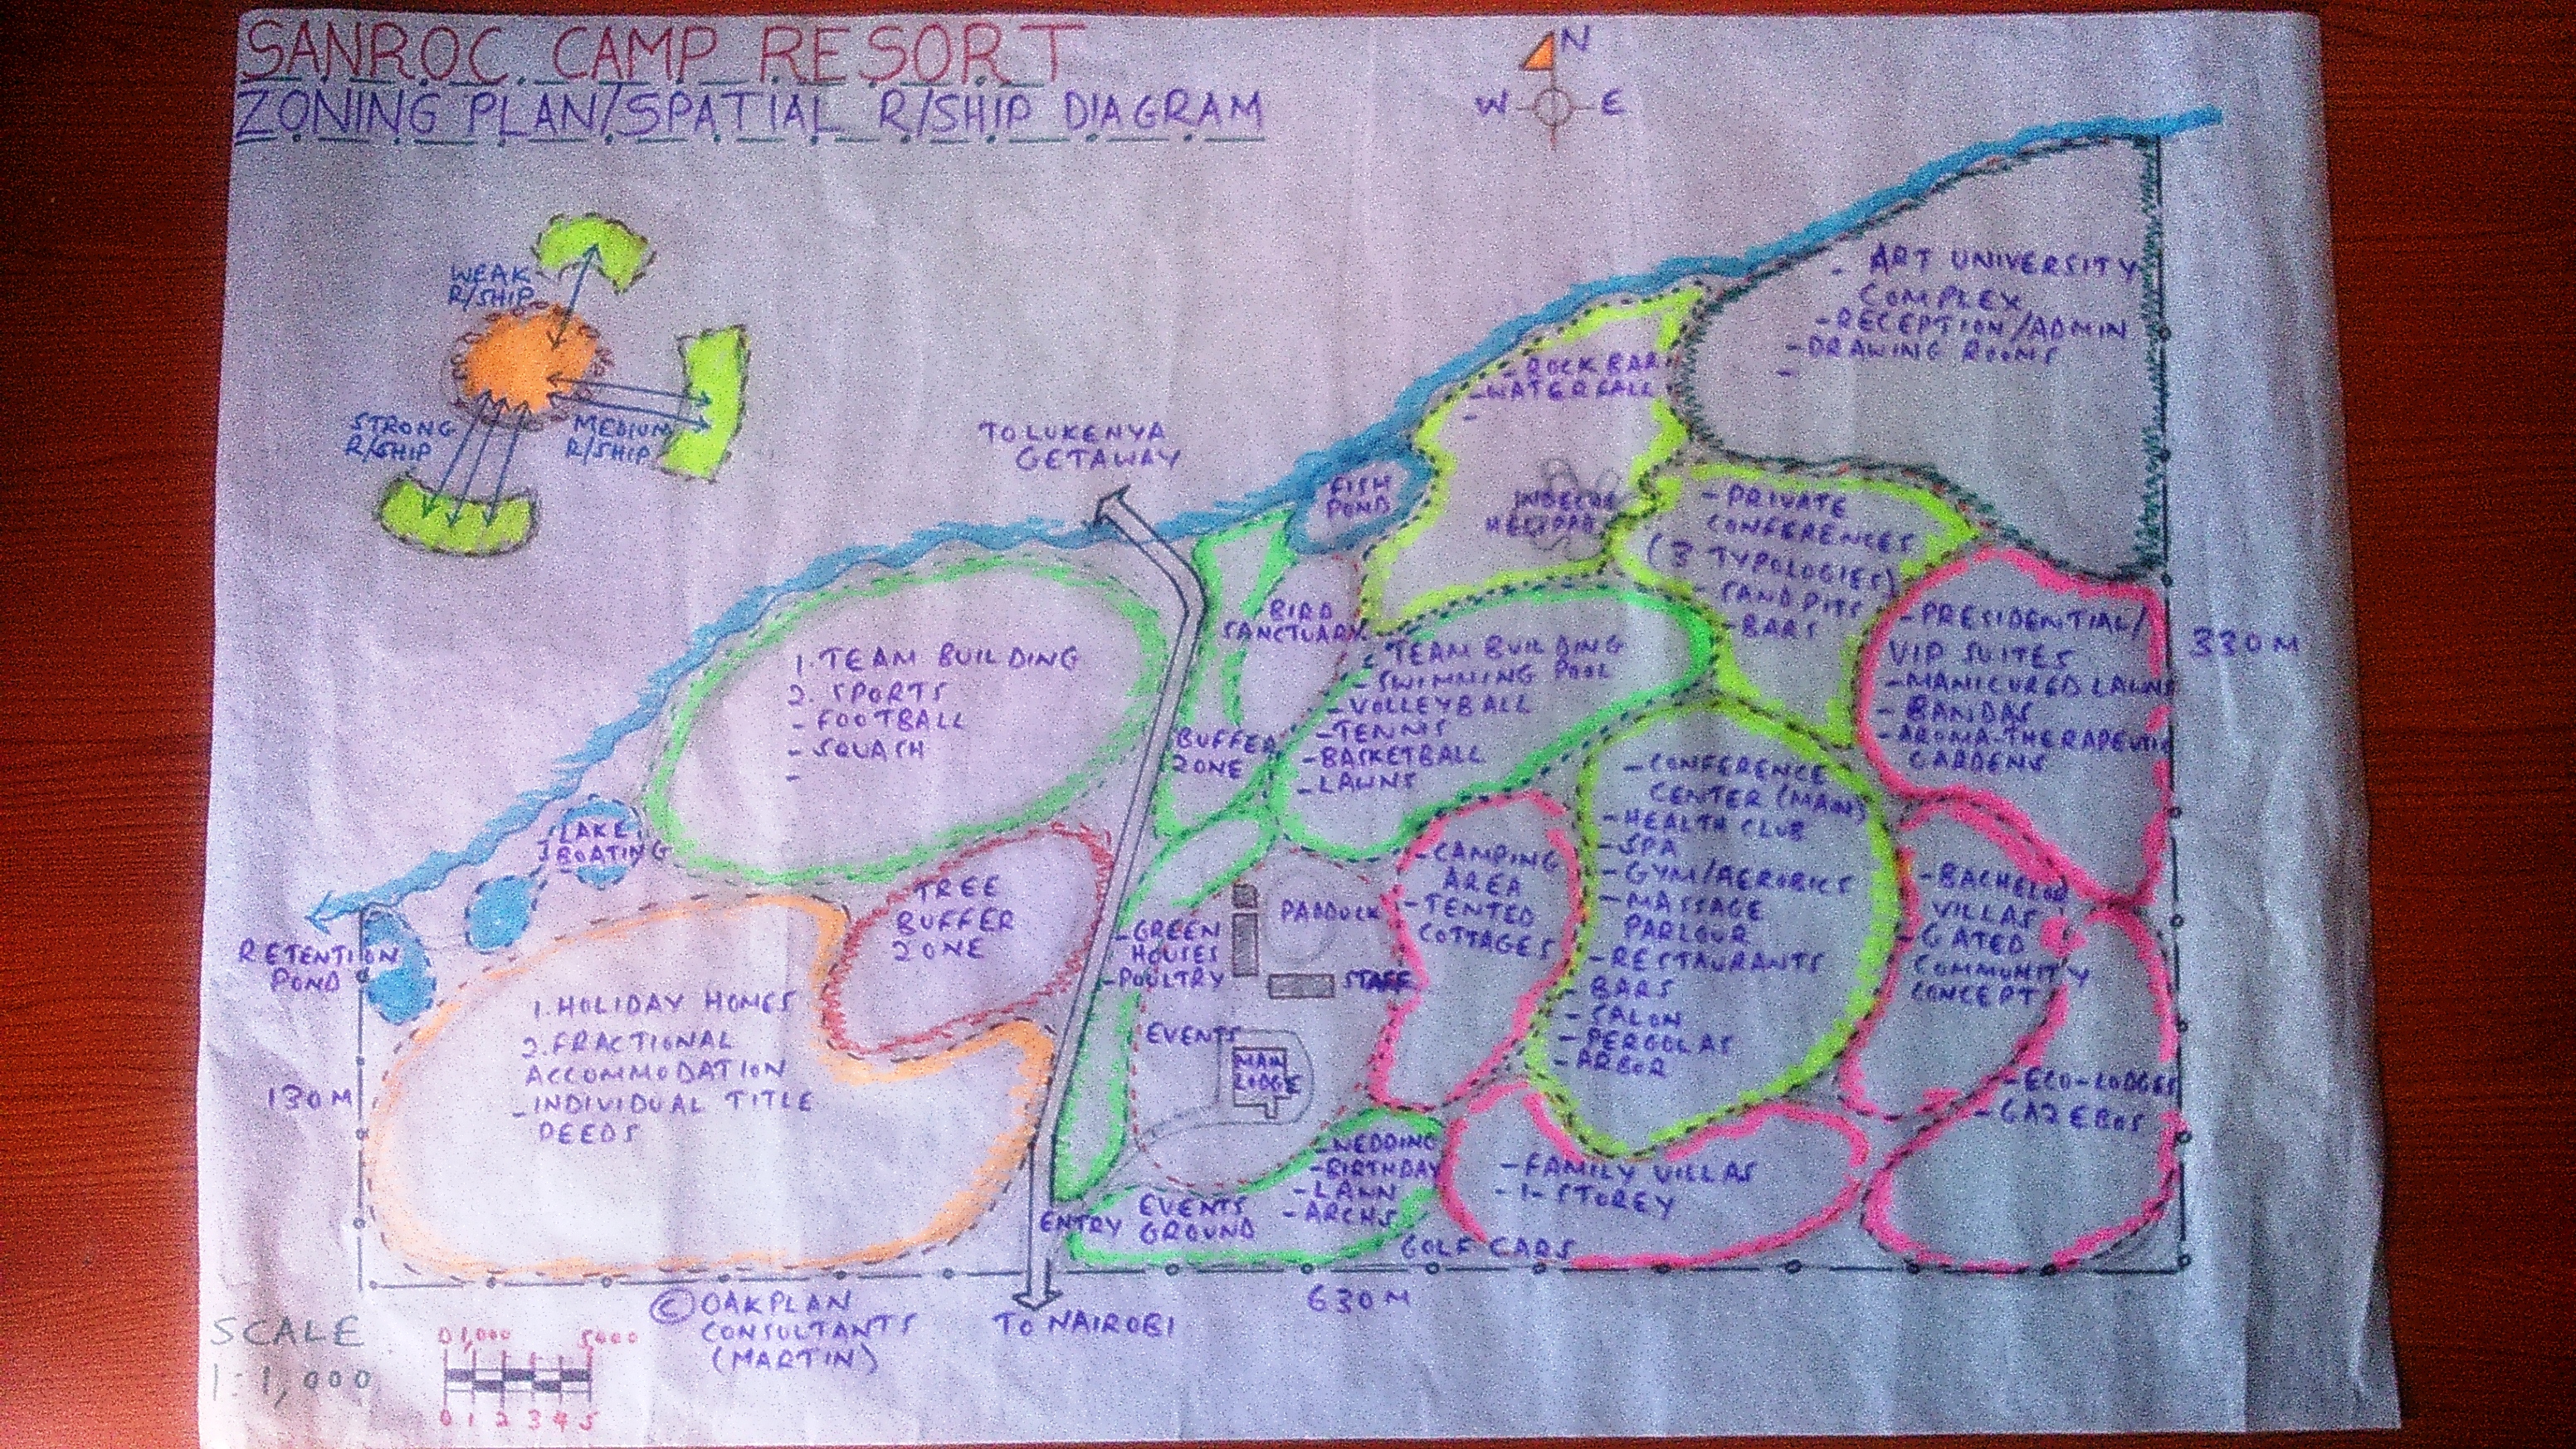 SANROC CAMP RESORT
ZONING PLAN/SPATIAL R/SHIP DIAGRAM
N
W E
WEAK
R/SHIP
STRONG
R/SHIP
MEDIUM
R/SHIP
TO LUKENYA
GETAWAY
- ART UNIVERSITY
COMPLEX
- RECEPTION/ADMIN
- DRAWING ROOMS
-
- ROCK BAR
- WATERFALL
-
FISH
POND
- PRIVATE
CONFERENCES
(3 TYPOLOGIES)
- SAND PITS
- BARS
BIRD
SANCTUARY
1. TEAM BUILDING
2. SPORTS
- FOOTBALL
- SQUASH
-
BUFFER
ZONE
- TEAM BUILDING
- SWIMMING POOL
- VOLLEYBALL
- TENNIS
- BASKETBALL
- LAWNS
- PRESIDENTIAL/
VIP SUITES
- MANICURED LAWNS
- BANDAS
- AROMA-THERAPEUTIC
GARDENS
330M
LAKE
BOATING
RETENTION
POND
TREE
BUFFER
ZONE
- GREEN
HOUSES
- POULTRY
PADDOCK
STAFF
- CAMPING
AREA
- TENTED
COTTAGES
- CONFERENCE
CENTER (MAIN)
- HEALTH CLUB
- SPA
- GYM/AEROBICS
- MASSAGE
PARLOUR
- RESTAURANTS
- BARS
- SALON
- PERGOLAS
- ARBOR
- BACHELOR
VILLAS
- GATED
COMMUNITY
CONCEPT
1. HOLIDAY HOMES
2. FRACTIONAL
ACCOMMODATION
- INDIVIDUAL TITLE
DEEDS
130M
EVENTS
MAIN
LODGE
- ECO-LODGES
- GAZEBOS
- WEDDING
- BIRTHDAY
- LAWN
- ARCHS
- FAMILY VILLAS
- 1- STOREY
ENTRY
EVENTS
GROUND
GOLF CARS
630M
TO NAIROBI
© OAKPLAN
CONSULTANTS
(MARTIN)
SCALE
1:1,000
0 1,000 5000
0 1 2 3 4 5